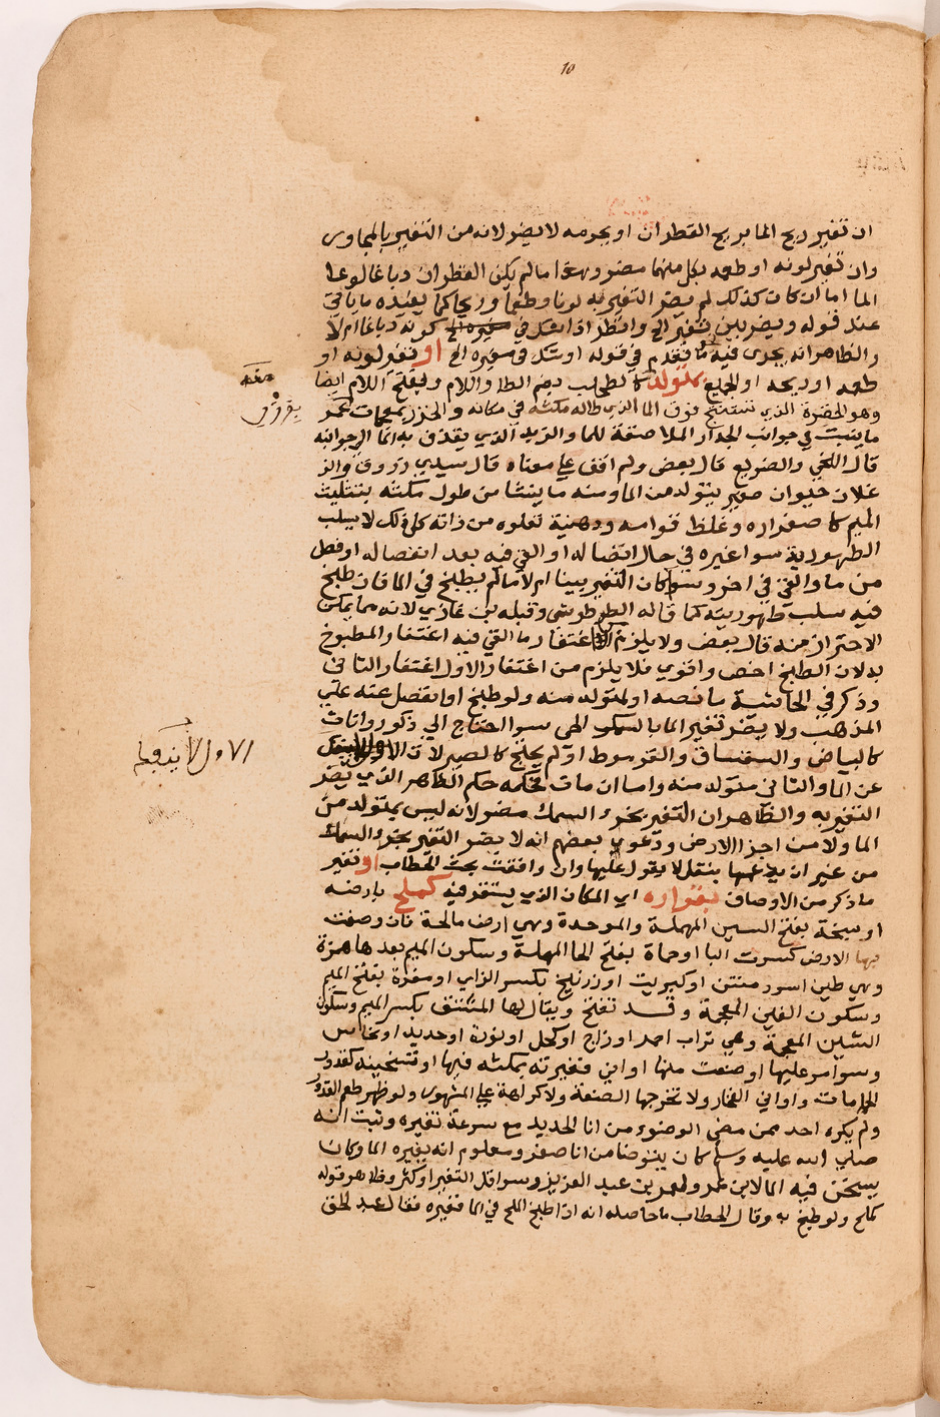 10
ان تغير ريح الما بريح القطران او بجرمه لا يضر لانه من التغير بالمجاور
وان تغير لونه او طعمه بكل منهما مضر وهذا ما لم يكن القطران دباغا لوعا
الما اما ان كان كذلك لم يضر التغير به لونا وطعما وريحا كما يفيده ما ياتى
عند قوله ويضر بين تغير الخ وانظر اذا شك في كونه دباغا ام لا
والظاهر انه يجرى فيه ما تقدم في قوله او شك في مغيره الخ او تغير لونه او
طعمه او ريحه او الجميع بمتولد كالطحلب بضم الطا واللام وبفتح اللام ايضا
وهو الخضرة التي فوق الما الذي طال مكثه في مكانه والخز بمعجمات
ما ينبت في جوانب الجدار الملاصقة للما والزبد الذي يقذف به الما الى جوانبه
قال اللخمي والضريع قال بعض ولم اقف على معناه قال سيدي زروق والز
غلان حيوان صغير يتولد من الما ومنه ما ينشا من طول مكثه بتثليث
الميم كاصفراره وغلظ قوامه ودهنية تعلوه من ذاته كل ذلك لا يسلب
الطهورية سوا غيره في حال اتصاله او القي فيه بعد انفصاله او فصل
من ما والقي في اخر وسوا كان التغير بينا ام لا ما لم يطبخ في الما فان طبخ
فيه سلب طهوريته كما قاله الطرطوشى وقبله بن غازي لانه مما يمكن
الاحتراز منه قال بعض ولا يلزم من اغتفار ما القي فيه اغتفار المطبوخ
به لان الطبخ اخص واقوى فلا يلزم من اغتفار الاول اغتفار الثانى
وذكر في الحاشية ما نصه او لمتولد منه ولو طبخ او انفصل عنه على
المذهب ولا يضر تغير الما بالسمك الحى سوا احتاج الى ذكور واناث
عن الما والثانى متولد منه واما ان مات فحكمه حكم الطاهر الذي يضر
التغير به والظاهر ان التغير بخرء السمك مضر لانه ليس بمتولد من
الما ولا من اجزا الارض ودعوى بعضهم انه لا يضر التغير بخرء السمك
من غير ان يدعمها بنقل لا يعول عليها وان وافقت بحث الحطاب او تغير
ما ذكر من الاوصاف بقراره اى المكان الذي يستقر فيه كملح بارضه
او سبخة بفتح السين المهملة والموحدة وهي ارض مالحة فان وصفت
بها الارض كسرت البا او حماة بفتح الحا المهملة وسكون الميم بعدها همزة
وهي طين اسود منتن او كبريت او زرنيخ بكسر الزاي او مغرة بفتح الميم
وسكون الغين المعجمة وقد تفتح ويقال لها المشق بكسر الميم وسكون
الشين المعجمة وهي تراب احمر او زاج او كحل او نورة او حديد او نحاس
وسوا مر عليها او صنعت منها اواني فغيرته بمكثه فيها او تسخينه كقدور
الحمامات واواني الفخار ولا تخرجها الصنعة ولا كراهة على المشهور ولو ظهر طعم القدر
ولم يكره احد ممن مضى الوضوء من انا الحديد مع سرعة تغيره وثبت انه
صلى الله عليه وسلم كان يتوضا من انا صفر ومعلوم انه يغيره الما وكان
يسخن فيه الما لابن عمر ولعمر بن عبد العزيز وسوا قل التغير او كثر وظاهر قوله
كملح ولو طبخ به وقال الحطاب ما حاصله انه اذا طبخ الملح في الما فغيره فقال عبد الحق